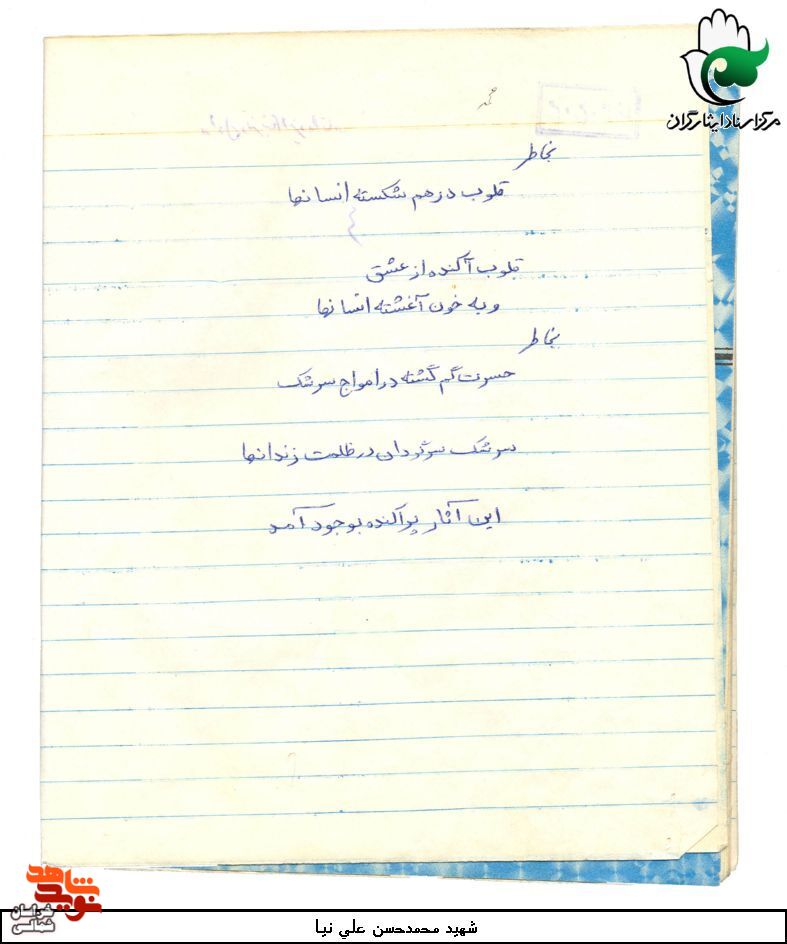 مرکز اسناد ایثارگران
بخاطر
قلوب درهم شکسته انسانها
قلوب آکنده از عشق
و به خون آغشته انسانها
بخاطر
حسرت گم گشته در امواج سرشک
سرشک سرگردان در ظلمت زندانها
این آثار پراکنده بوجود آمد
نوید شاهد
خراسان شمالی
شهید محمدحسن علي نیا